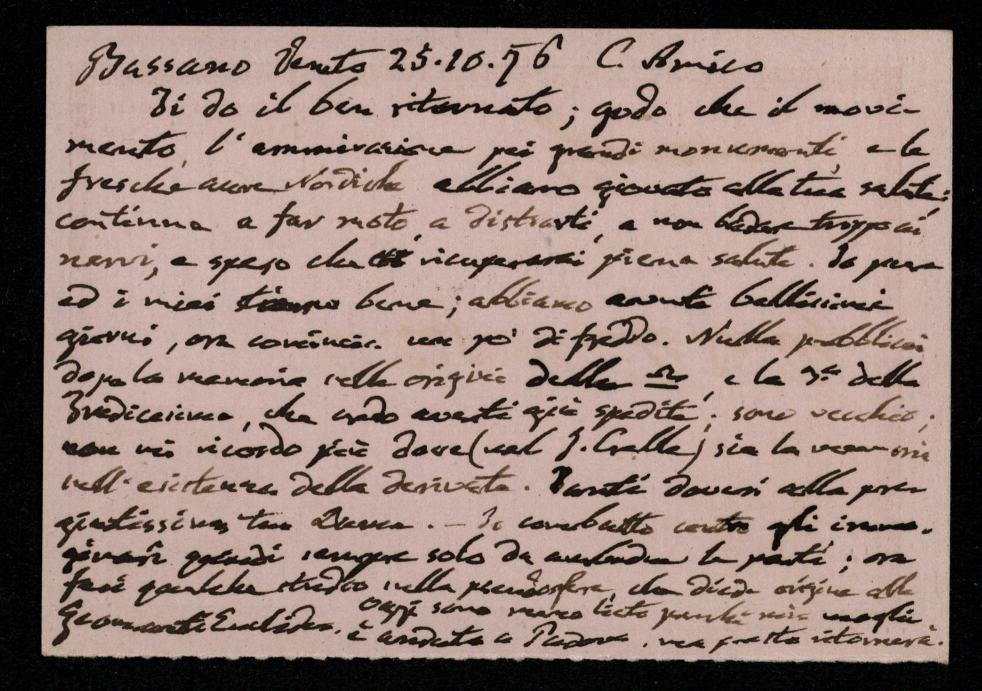 Bassano Veneto 25.10.76 C. Amico
Ti do il ben ritornato; godo che il movi-
mento, l'ammirazione pei grandi monumenti, e le
fresche aure Nordiche abbiano giovato alla tua salute:
continua a far moto, a distrarti, e non badare troppo ai
nervi, e spero che ricupererai piena salute. Io pure
ed i miei stiamo bene; abbiamo avuti bellissimi
giorni, ora comincia un po' di freddo. Nulla pubblicai
dopo la memoria sulle origini della e la 3.a della
che credo averti già spedite; sono vecchio;
non mi ricordo più dove (nel G. Crelle) sia la memoria
sull'esistenza della derivata. Tanti doveri alla pre-
giatissima tua Dama. - Io combatto contro gli imma-
ginarî quindi sempre solo da una le parti; ora
farei qualche studio sulla pseudosfera, che diede origine alla
Geometria Oggi sono meno lieto perchè mia moglie
è andata a Padova. ma presto ritornerà.